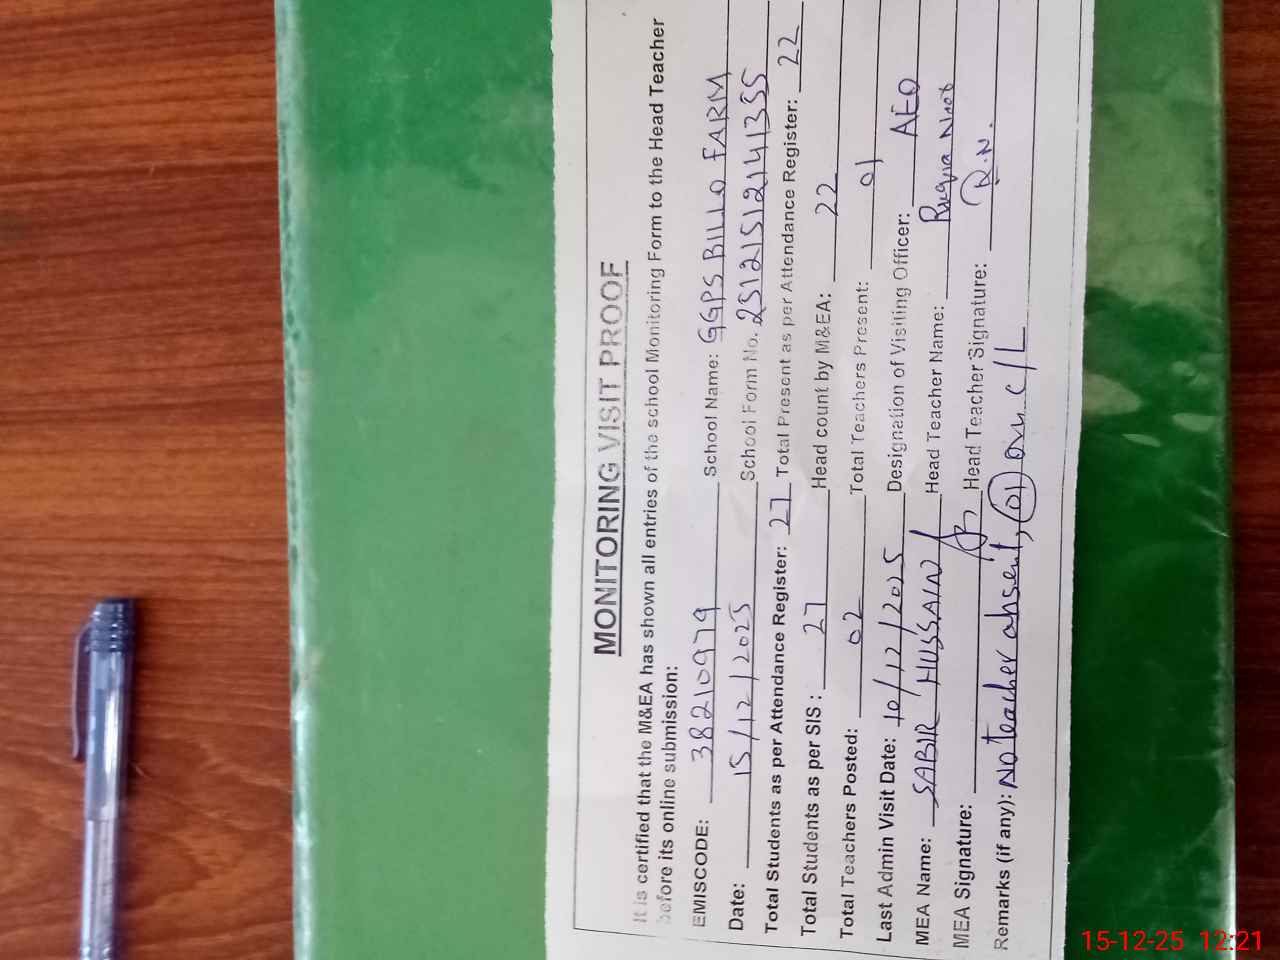 MONITORING VISIT PROOF
It is certified that the M&EA has shown all entries of the school Monitoring Form to the Head Teacher
before its online submission:
EMISCODE: 38210979 School Name: GGPS BILLO FARM
Date: 15/12/2025 School Form No. 251215121141355
Total Students as per Attendance Register: 27 Total Present as per Attendance Register: 22
Total Students as per SIS: 27 Head count by M&EA: 22
Total Teachers Posted: 02 Total Teachers Present: 01
Last Admin Visit Date: 10/12/2025 Designation of Visiting Officer: AEO
MEA Name: SABIR HUSSAIN Head Teacher Name:
MEA Signature: Head Teacher Signature: R.N.
Remarks (if any): No teacher absent, 01 on c/L
15-12-25 12:21